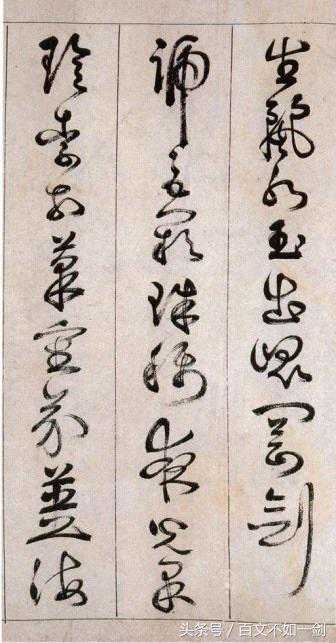 生麗水玉出崑岡劍
號巨闕珠稱夜光果
珍李柰菜重芥薑海
头条号 / 百文不如一剑